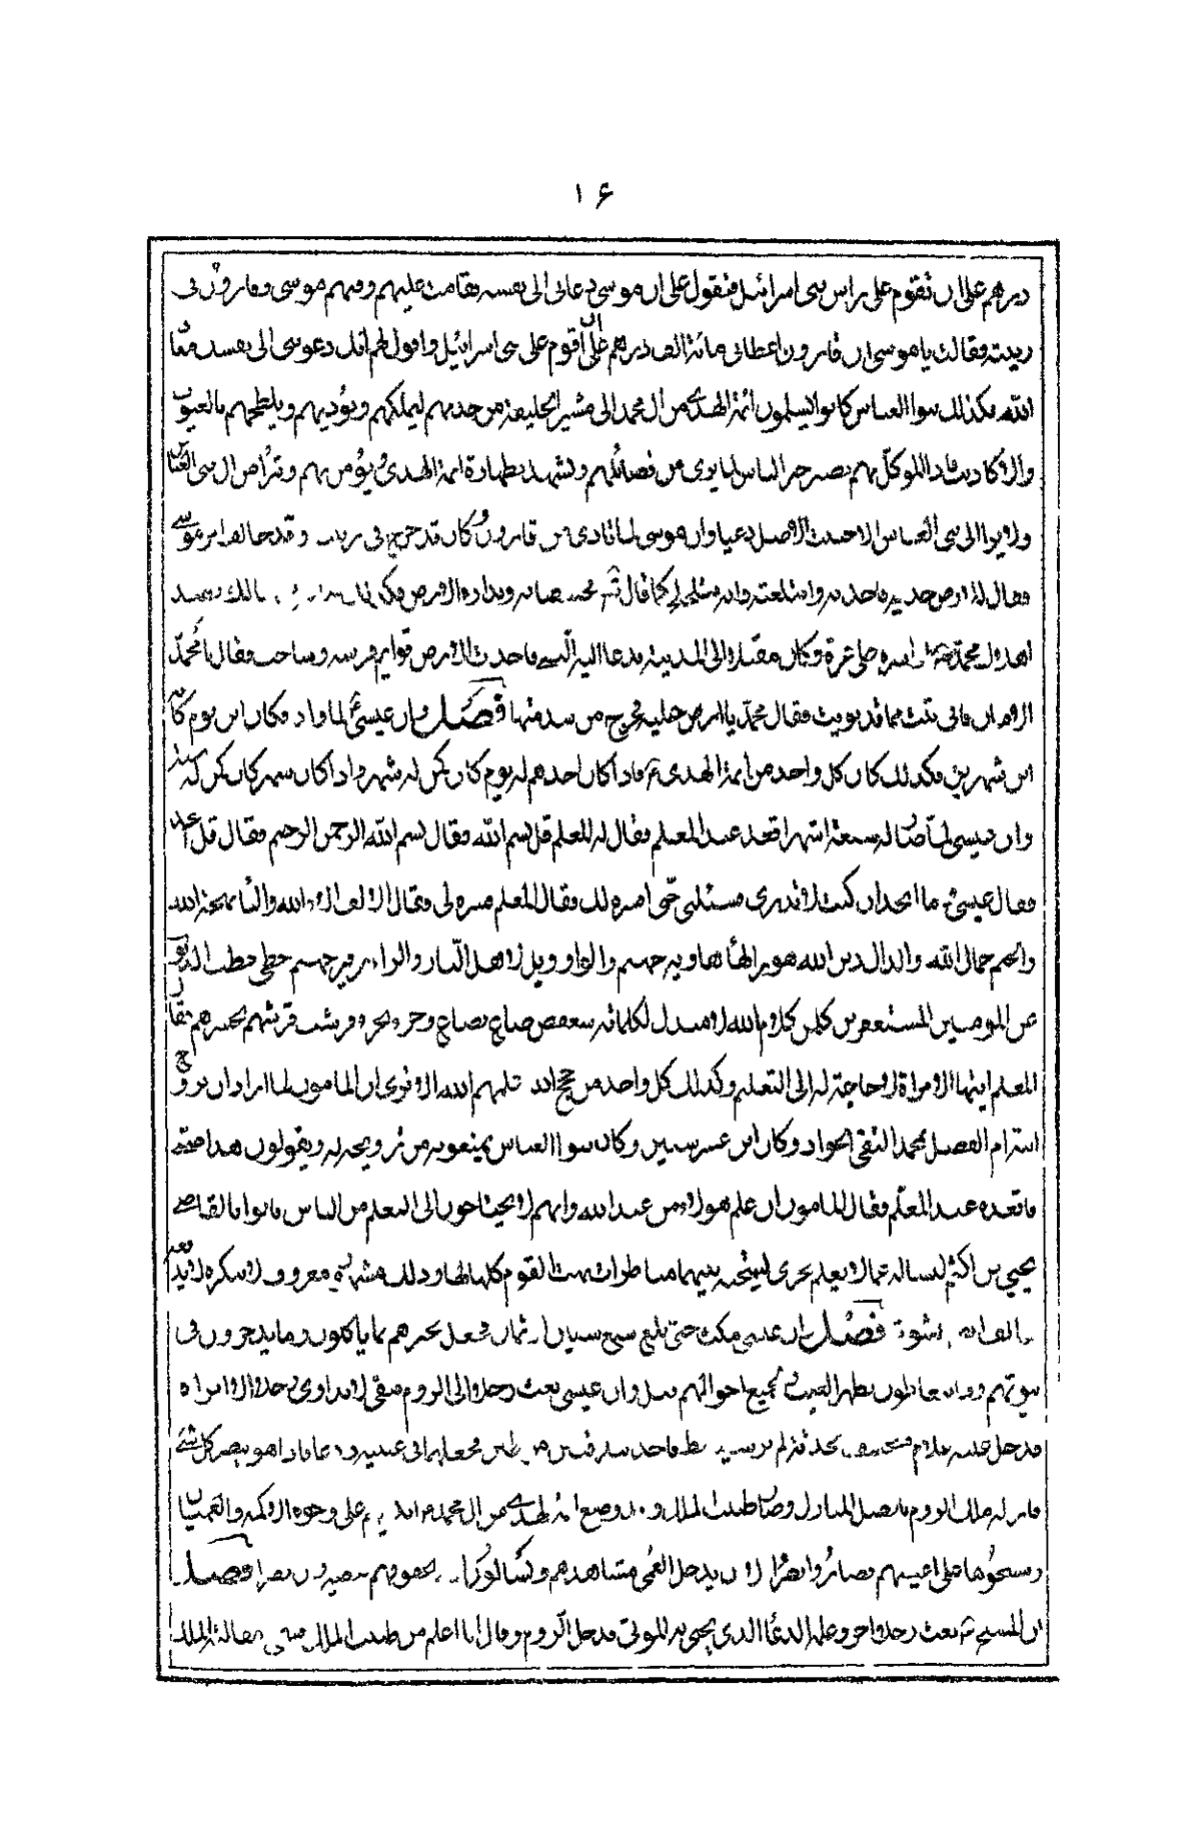 ١۶
درهم على ان تقوم على راس بنى اسرائيل فتقول على ان موسى دعانى الى نفسه فقامت عليهم وفيهم موسى وقارون فى
زينته فقالت يا موسى ان قارون اعطانى مائة الف درهم على ان اقوم على بنى اسرائيل واقول لهم انك دعوتنى الى نفسك معاذ
الله فكذلك بنوا العباس كانوا يسلمون ائمة الهدى من ال محمد الى مشير الخليفة من جندهم ليملكهم ويؤذيهم ويلطخهم بالعيوب
والاكاذيب فاذا الموكل بهم يصير خير الناس لما يرى من فضائلهم ويشهد بطهارة ائمة الهدى ويؤمن بهم ويتبرا من ال بنى العباس
ولا يرا الى بنى العباس الا خبيث الاصل دعيا وان موسى لما تاذى من قارون وكان قد خرج فى زينته وقد خالف امر موسى
فقال للارض خذيه فاخذته وابتلعته وانه كما قال نحسف به وبداره الارض فكذلك
اهدل محمد وكان مقبلا الى المدينة فدعا اليه النبى فاخذت الارض قوايم فرسه وساخت فقال يا محمد
الامان فانى تبت مما قد نويت فقال محمد يا ارض خليه فخرج من سدمتها فصل وان عيسى لما ولد فكان ابن يوم كان
ابن شهرين فكذلك كان كل واحد من ائمة الهدى فاذا كان احدهم له يوم كان كمن له شهر واذا كان شهر كان كمن له سنة
وان عيسى لما صار له سبعة اشهر اقعد عند المعلم فقال له المعلم قل بسم الله فقال بسم الله الرحمن الرحيم فقال قل ابجد
فقال عيسى ما ابجد ان كنت لا تدرى فسئلنى حتى افسره لك فقال المعلم فسره لى فقال الالف الاء الله والباء بهجة الله
والجيم جمال الله والدال دين الله هوز الهاء هاوية جهنم والواو ويل لاهل النار والزاء زفير جهنم حطى حطت الذنوب
عن المومنين المستغفرين كلمن كلام الله لا مبدل لكلماته سعفص صاع بصاع وجزء بجزء قرشت قرشهم بحشرهم فقال
المعلم ايتها الامراة لا حاجة له الى التعليم وكذلك كل واحد من حجج الله علمهم الله الا ترى ان المامون لما اراد ان يزوج
ابنته ام الفضل محمد التقى الجواد وكان ابن عشر سنين وكان بنوا العباس يمنعونه من تزويجه له ويقولون هذا صبى
فاقعده عند المعلم فقال المامون ان علم هولاء من عند الله وانهم لا يحتاجون الى التعلم من الناس فاتوا بالقاضى
يحيى بن اكثم ليساله عما لا يعلم فجرى ليمتحنه بينهما مناظرات بهت القوم كلها لها وذلك مشهور معروف لا ينكره لا بعد
فصل وان عيسى مكث حتى بلغ سبع سنين او ثمان فجعل يخبرهم بما ياكلون وما يدخرون فى
بيوتهم يظهر الغيب بجميع احوالهم وان عيسى بعث رجلا الى الروم فبقى لا يداوى رجلا الا ابراه
فدخل عليه غلام فاخذ بندقتين من طين فجعلهما فى عينيه ودعا فاذا هو يبصر كل شئ
فانزله ملك الروم بافضل المنازل وصار طبيب الملك وضع ائمة الهدى من ال محمد على وجوه الاكمه والعميان
ومسحوها على اعينهم فصاروا بصراء الا ان يدخل العمى مشاهدهم ويسالوا بحقوقهم فصل
ان المسيح بعث رجلا اخر وعلمه الدعا الذى يحيى به الموتى فدخل الروم وقال انا اعلم من طبيب الملك